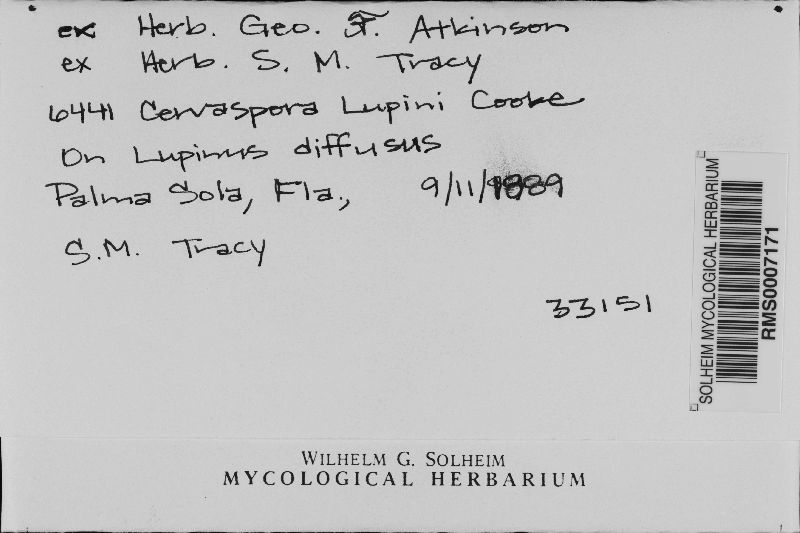 ex Herb. Geo. F. Atkinson
ex Herb. S. M. Tracy
6441 Cervaspora Lupini Cooke
On Lupinus diffusus
Palma Sola, Fla., 9/11/1889
S.M. Tracy
33151
SOLHEIM MYCOLOGICAL HERBARIUM
RMS0007171
WILHELM G. SOLHEIM
MYCOLOGICAL HERBARIUM